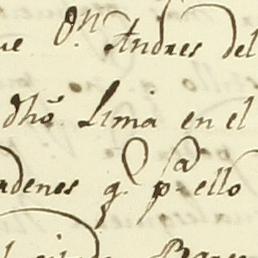 ue Dn. Andres del
dho Lima en el
adenes q. pa. ello